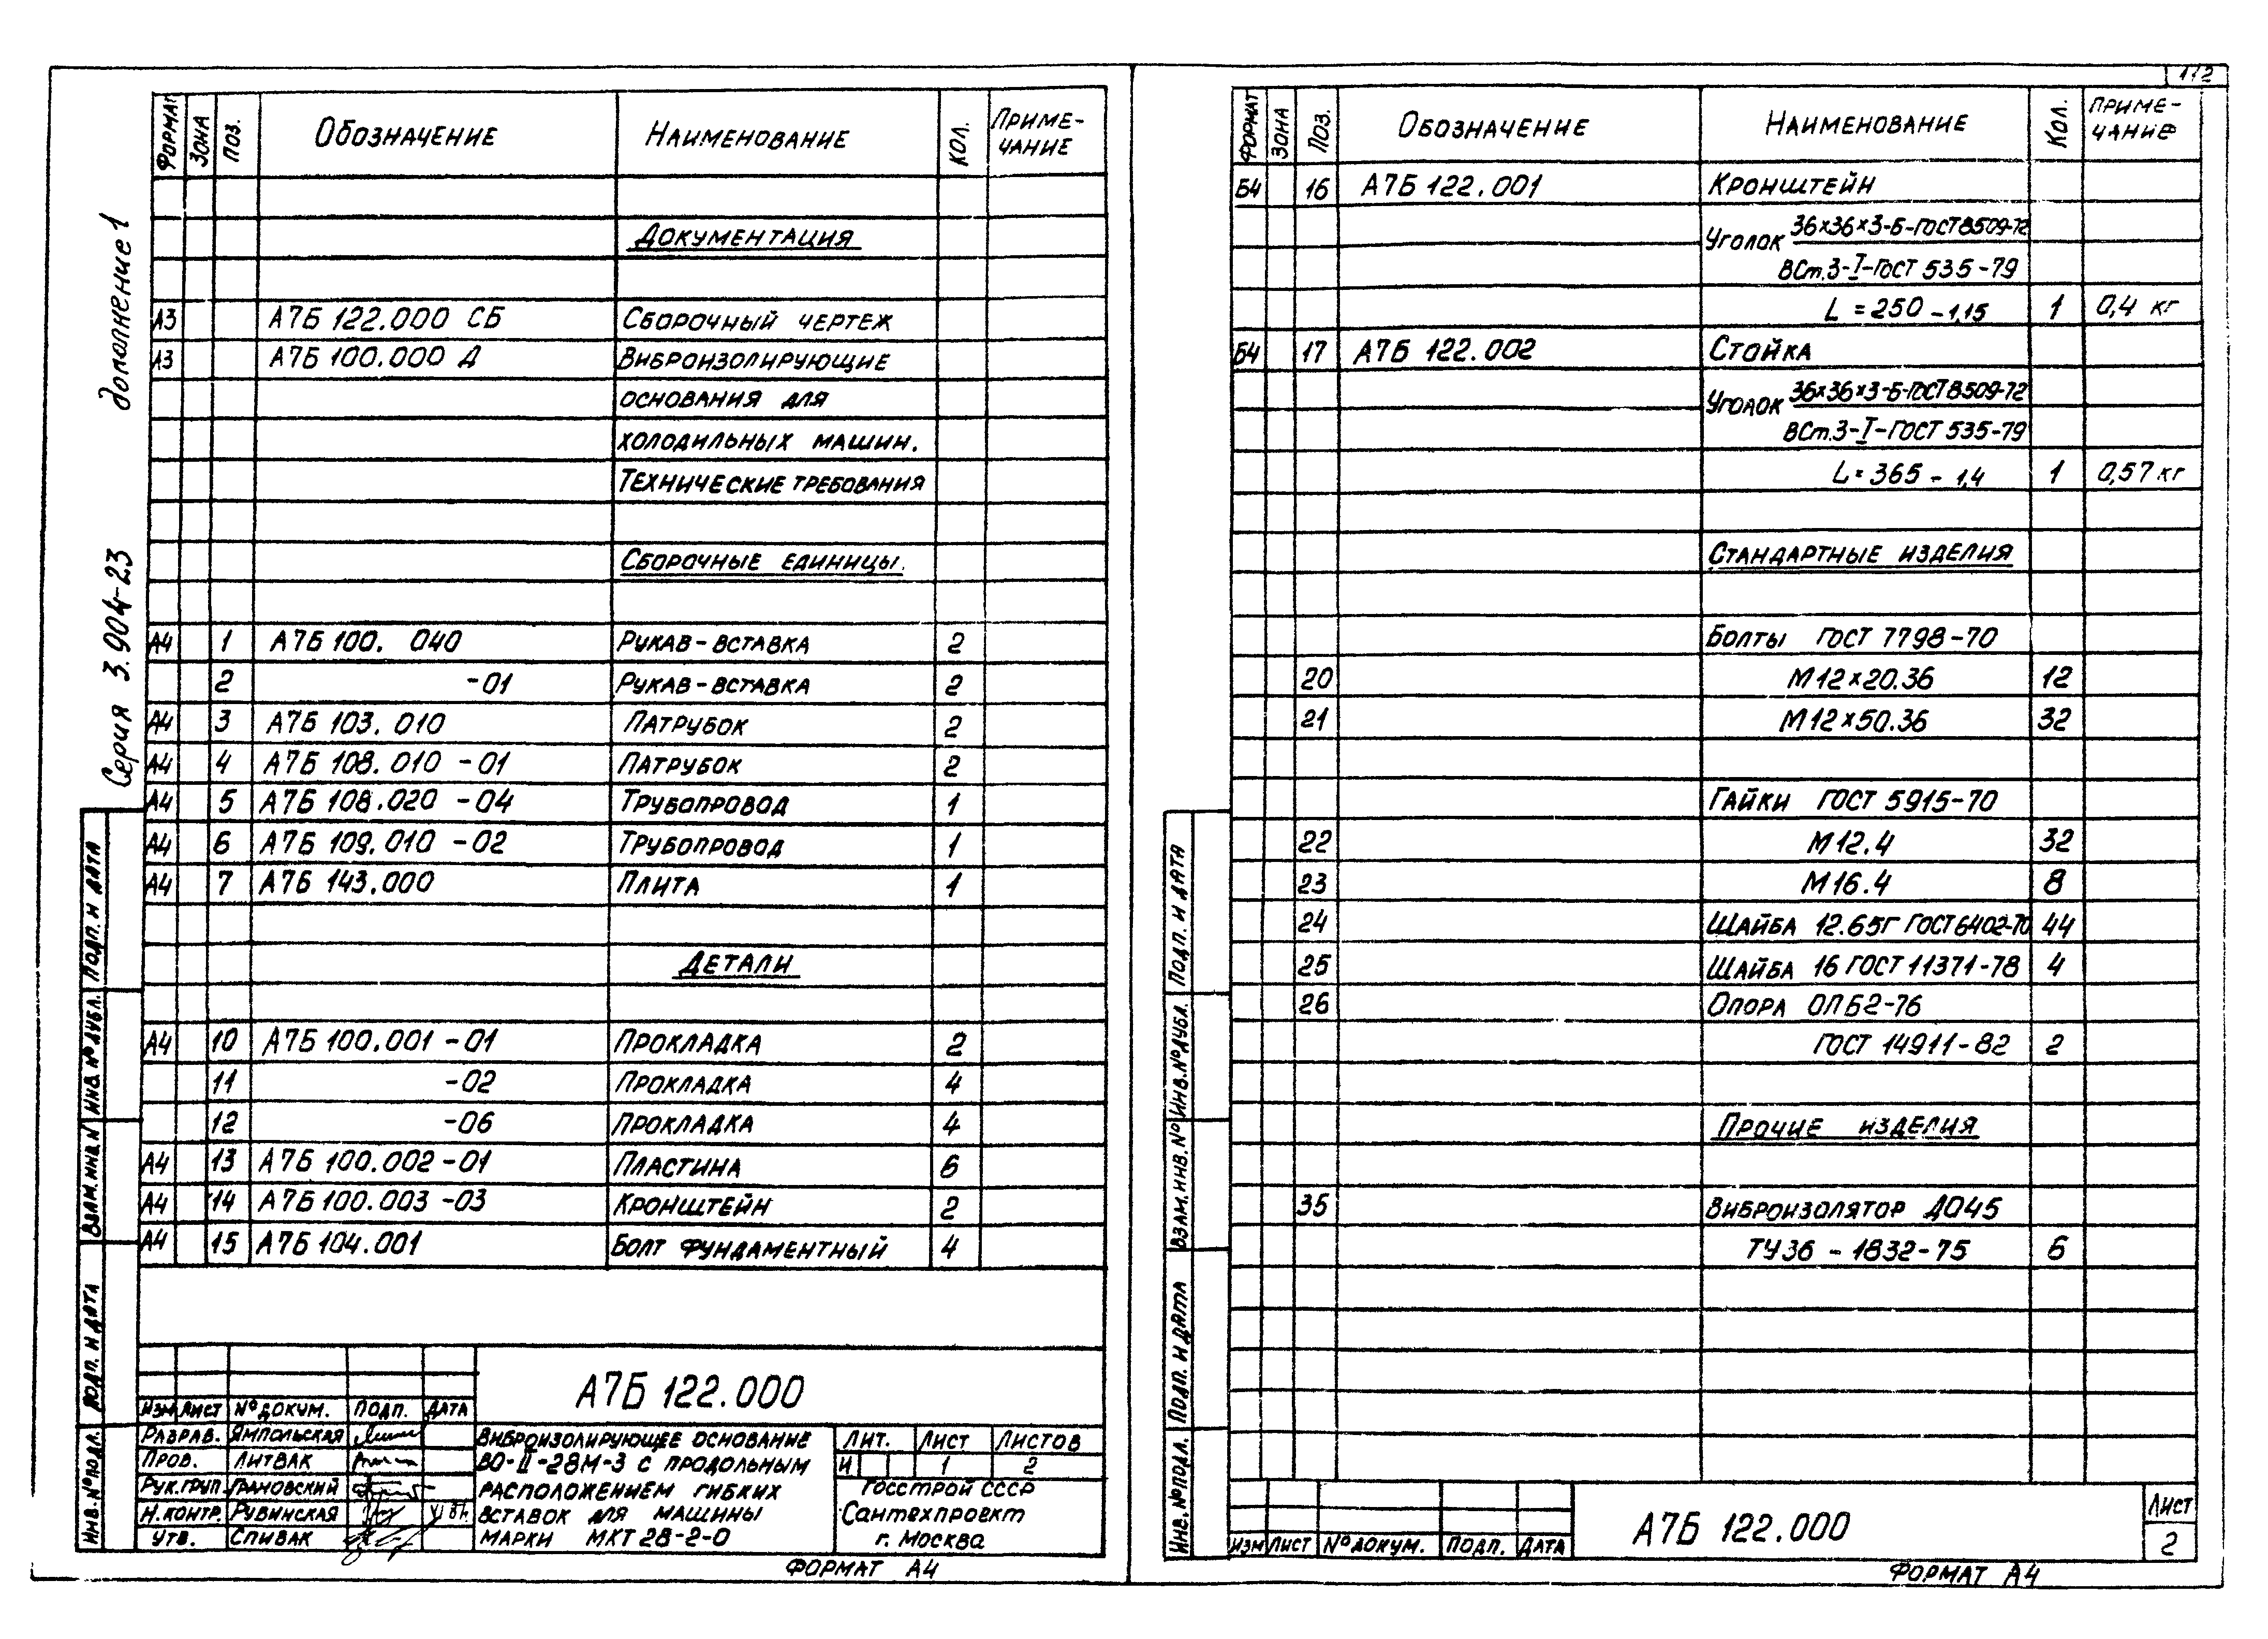 1/2
Серия 3.904-23 дополнение 1
ФОРМАТ ЗОНА ПОЗ. ОБОЗНАЧЕНИЕ НАИМЕНОВАНИЕ КОЛ. ПРИМЕ-
ЧАНИЕ
ДОКУМЕНТАЦИЯ
А3 А7Б 122.000 СБ СБОРОЧНЫЙ ЧЕРТЕЖ
А3 А7Б 100.000 Д ВИБРОИЗОЛИРУЮЩИЕ
ОСНОВАНИЯ ДЛЯ
ХОЛОДИЛЬНЫХ МАШИН.
ТЕХНИЧЕСКИЕ ТРЕБОВАНИЯ
СБОРОЧНЫЕ ЕДИНИЦЫ.
А4 1 А7Б 100. 040 РУКАВ-ВСТАВКА 2
2 -01 РУКАВ-ВСТАВКА 2
А4 3 А7Б 103. 010 ПАТРУБОК 2
А4 4 А7Б 108. 010 -01 ПАТРУБОК 2
А4 5 А7Б 108.020 -04 ТРУБОПРОВОД 1
А4 6 А7Б 109.010 -02 ТРУБОПРОВОД 1
А4 7 А7Б 143.000 ПЛИТА 1
ДЕТАЛИ
А4 10 А7Б 100.001 -01 ПРОКЛАДКА 2
11 -02 ПРОКЛАДКА 4
12 -06 ПРОКЛАДКА 4
А4 13 А7Б 100.002 -01 ПЛАСТИНА 6
А4 14 А7Б 100.003 -03 КРОНШТЕЙН 2
А4 15 А7Б 104.001 БОЛТ ФУНДАМЕНТНЫЙ 4
ПОДП. И ДАТА
ИНВ. № ДУБЛ.
ВЗАМ. ИНВ. №
ПОДП. И ДАТА
ИНВ. № ПОДЛ.
А7Б 122.000
ИЗМ ЛИСТ № ДОКУМ. ПОДП. ДАТА
РАЗРАБ. ЯМПОЛЬСКАЯ
ПРОВ. ЛИТВАК
РУК. ГРУП. ГРАНОВСКИЙ
Н. КОНТР. РУВИНСКАЯ
УТВ. СПИВАК
ВИБРОИЗОЛИРУЮЩЕЕ ОСНОВАНИЕ
ВО-II-28М-3 С ПРОДОЛЬНЫМ
РАСПОЛОЖЕНИЕМ ГИБКИХ
ВСТАВОК ДЛЯ МАШИНЫ
МАРКИ МКТ 28-2-0
ЛИТ. ЛИСТ ЛИСТОВ
И 1 2
ГОССТРОЙ СССР
САНТЕХПРОЕКТ
г. МОСКВА
ФОРМАТ А4
ФОРМАТ ЗОНА ПОЗ. ОБОЗНАЧЕНИЕ НАИМЕНОВАНИЕ КОЛ. ПРИМЕ-
ЧАНИЕ
Б4 16 А7Б 122.001 КРОНШТЕЙН
УГОЛОК 36×36×3-Б-ГОСТ 8509-72
ВСт.3-I-ГОСТ 535-79
L = 250 -1,15 1 0,4 кг
Б4 17 А7Б 122.002 СТОЙКА
УГОЛОК 36×36×3-Б-ГОСТ 8509-72
ВСт.3-I-ГОСТ 535-79
L = 365 - 1,4 1 0,57 кг
СТАНДАРТНЫЕ ИЗДЕЛИЯ
БОЛТЫ ГОСТ 7798-70
20 М12×20.36 12
21 М12×50.36 32
ГАЙКИ ГОСТ 5915-70
22 М12.4 32
23 М16.4 8
24 ШАЙБА 12.65Г ГОСТ 6402-70 44
25 ШАЙБА 16 ГОСТ 11371-78 4
26 ОПОРА ОПБ2-76
ГОСТ 14911-82 2
ПРОЧИЕ ИЗДЕЛИЯ
35 ВИБРОИЗОЛЯТОР ДО45
ТУ36 - 1832-75 6
ПОДП. И ДАТА
ИНВ. № ДУБЛ.
ВЗАМ. ИНВ. №
ПОДП. И ДАТА
ИНВ. № ПОДЛ.
ИЗМ ЛИСТ № ДОКУМ. ПОДП. ДАТА
А7Б 122.000
ЛИСТ
2
ФОРМАТ А4